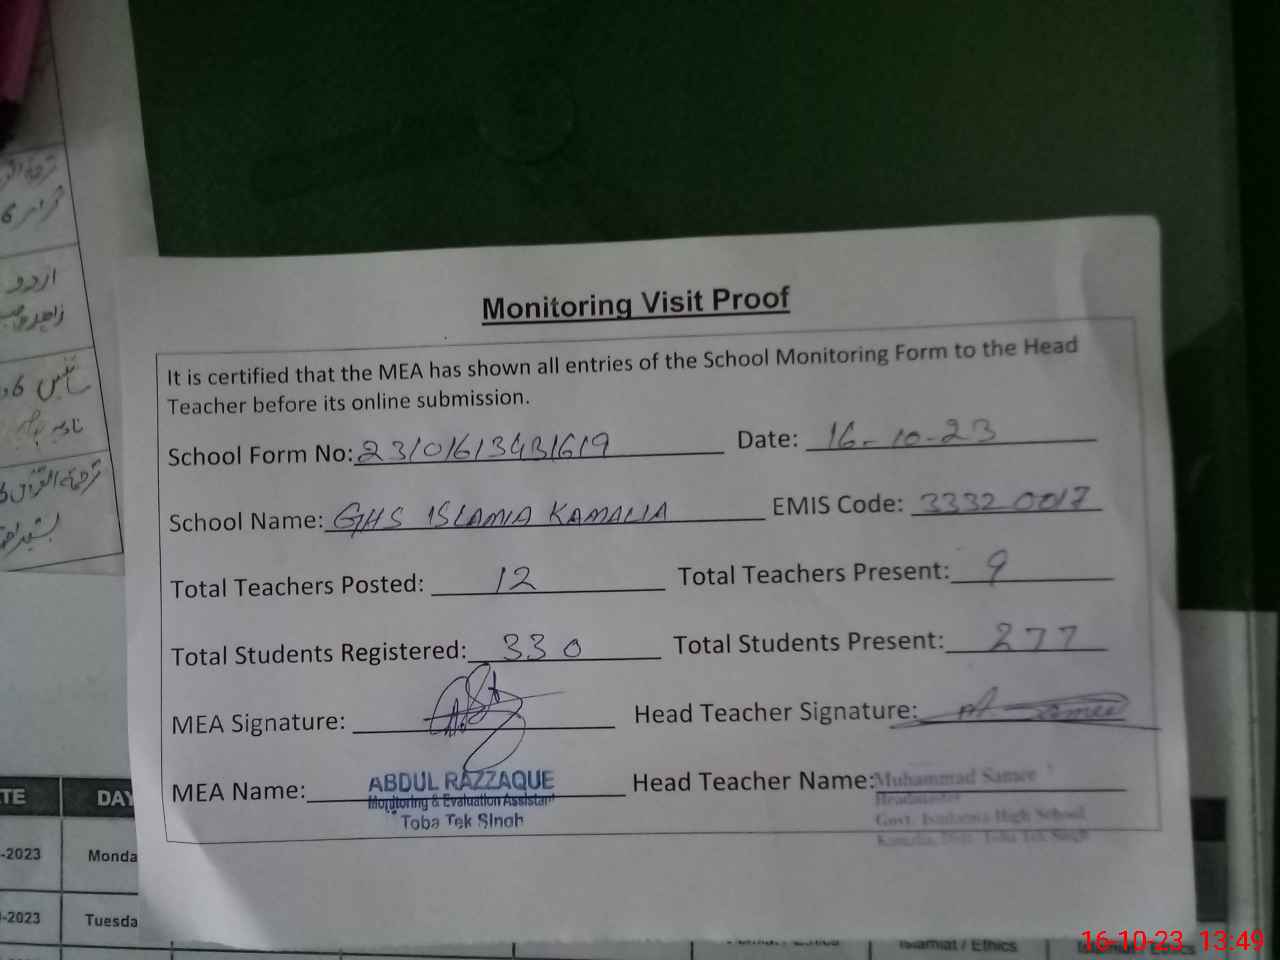 اردو
Monitoring Visit Proof
It is certified that the MEA has shown all entries of the School Monitoring Form to the Head
Teacher before its online submission.
School Form No: 23/016/3431619 Date: 16-10-23
School Name: GHS ISLAMIA KAMALIA EMIS Code: 33320017
Total Teachers Posted: 12 Total Teachers Present: 9
Total Students Registered: 330 Total Students Present: 277
MEA Signature: Head Teacher Signature:
MEA Name: ABDUL RAZZAQUE Head Teacher Name: Muhammad Samee
Monitoring & Evaluation Assistant Headmaster
Toba Tek Singh Govt. Islamia High School
Kamalia, Distt. Toba Tek Singh
TE DAY
-2023 Monda
-2023 Tuesda
Islamiat / Ethics
16-10-23 13:49